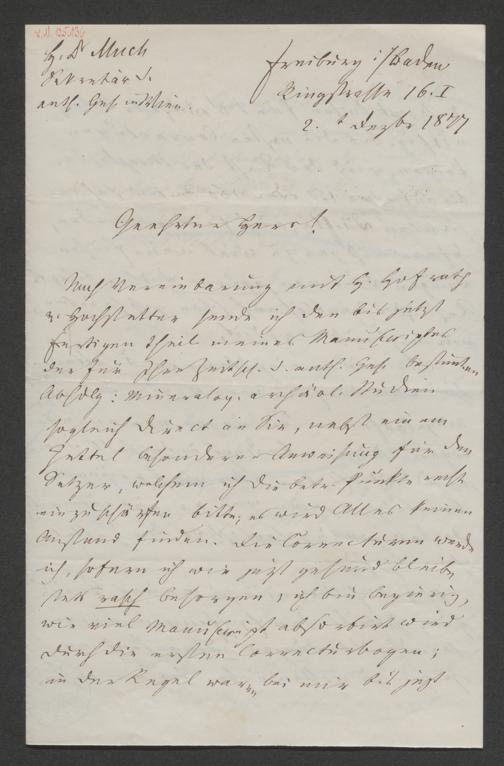 H. Dr Much
Sekretär d.
anth. Ges. in Wien.
Freiburg i/Baden
Ringstrasse 16. I
2. t Dezbr 1877
Geehrter Herr!
Nach Vereinbarung mit H. Hofrath
v. Hochstetter sende ich den bis jetzt
fertigen Theil meines Manuscriptes
der für Ihre Zeitsch. d. anth. Ges. bestimten
Abhdlg: Mineralog. archäol. Studien
sogleich direct an Sie, nebst einem
Zettel besonderer Anweisung für den
Setzer, welchem ich die betr. Punkte recht
einzuschärfen bitte; es wird Alles keinen
Anstand finden. Die Correcturen werde
ich, sofern ich wie jetzt gesund bleibe,
stets rasch besorgen; ich bin begierig,
wie viel Manuscript absorbirt wird
durch die ersten Correcturbogen;
in der Regel waren bei mir bis jetzt